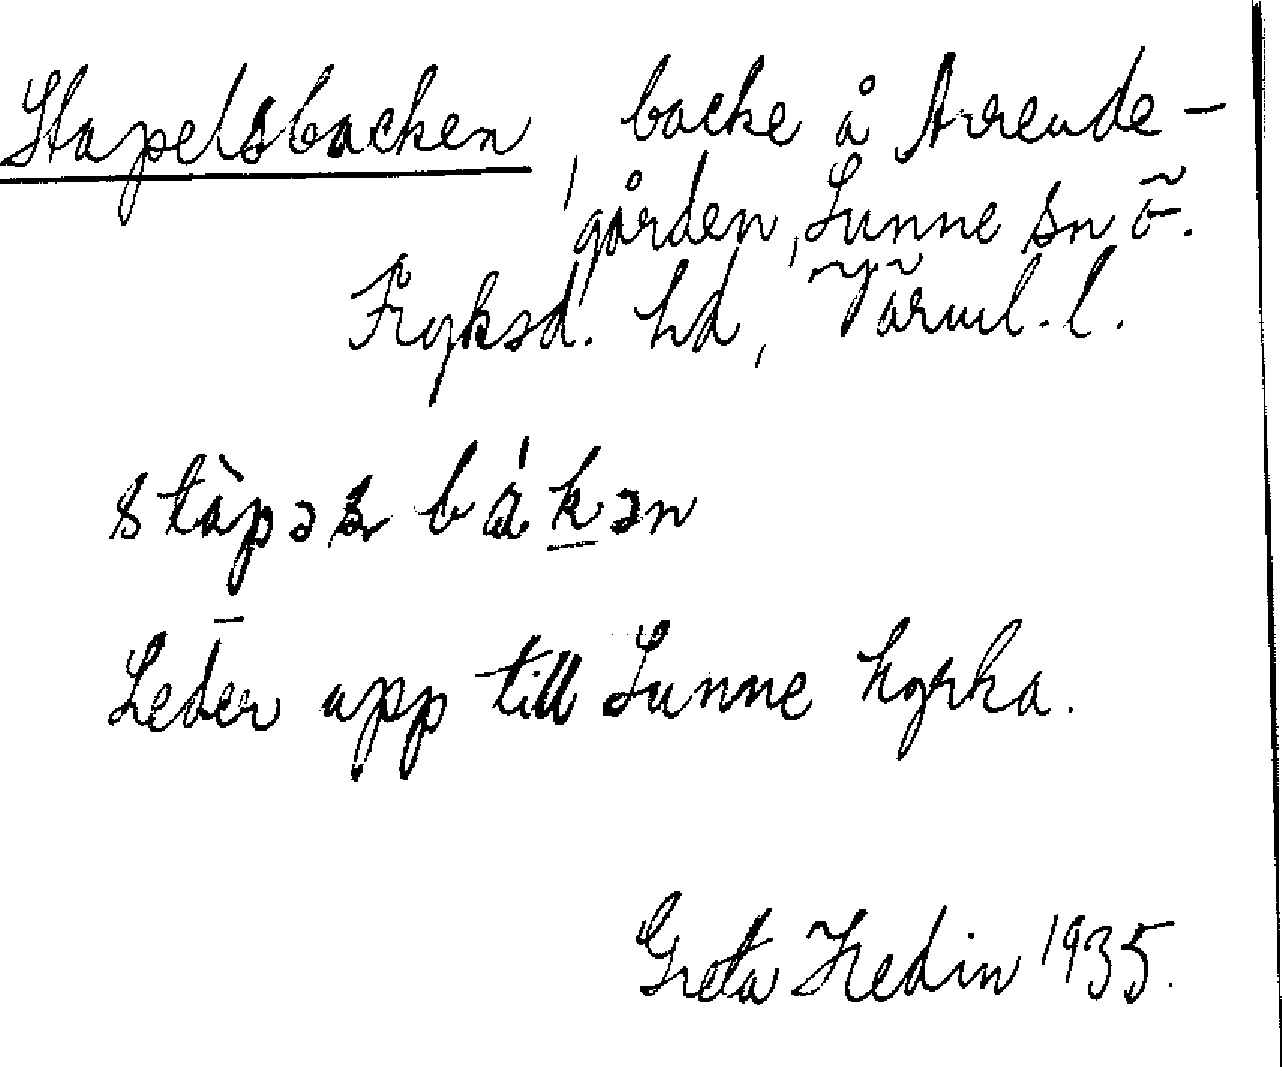 Stapelsbacken, backe å Arrende-
gården, Sunne sn ö.
Fryksd. hd, Värml. l.
stàpəs bákən
Leder upp till Sunne kyrka.
Greta Hedin 1935.